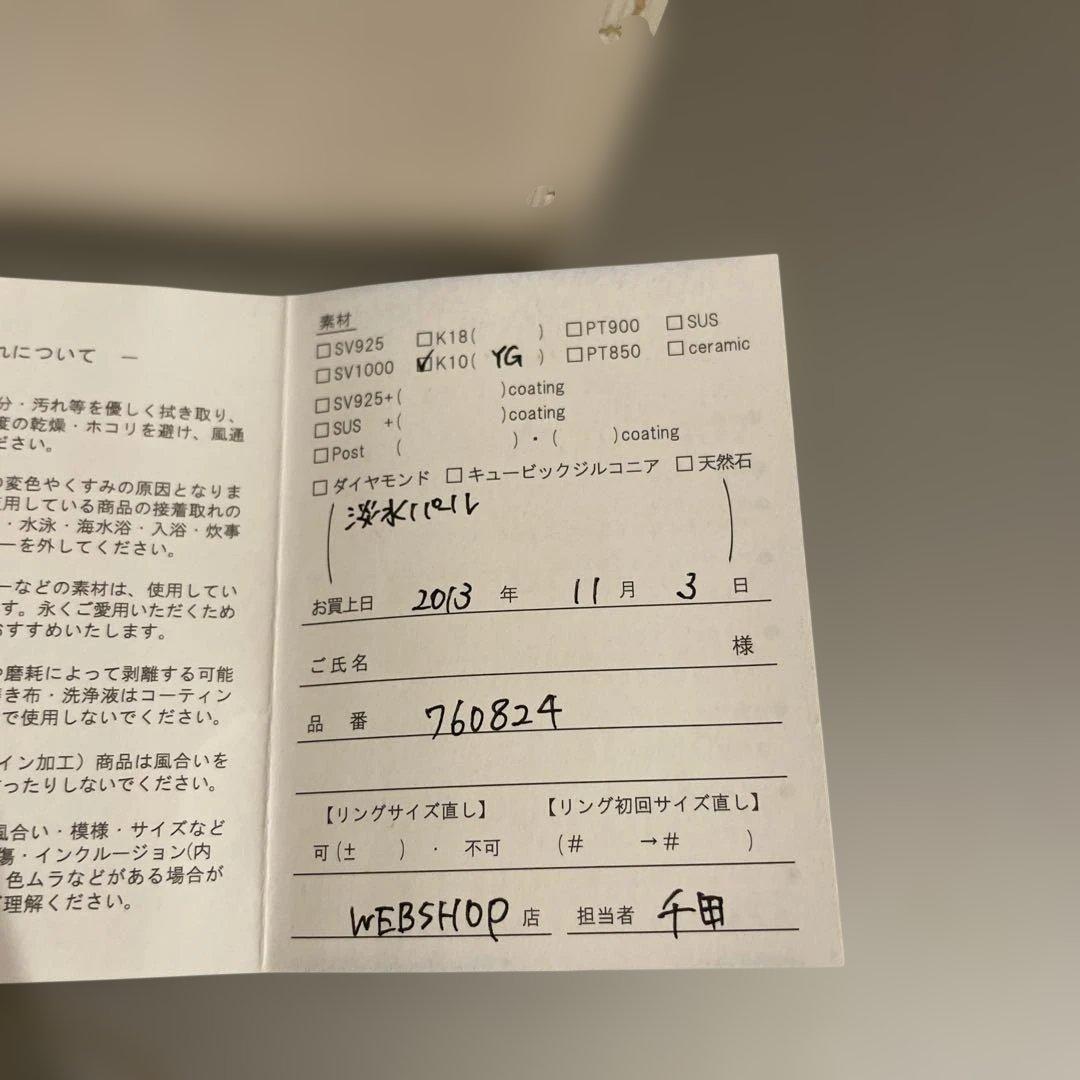 れについて ー
分・汚れ等を優しく拭き取り、
度の乾燥・ホコリを避け、風通
ださい。
や変色やくすみの原因となりま
使用している商品の接着取れの
・水泳・海水浴・入浴・炊事
ーを外してください。
ーなどの素材は、使用してい
す。永くご愛用いただくため
おすすめいたします。
や磨耗によって剥離する可能
磨き布・洗浄液はコーティン
で使用しないでください。
イン加工）商品は風合いを
ったりしないでください。
風合い・模様・サイズなど
傷・インクルージョン(内
色ムラなどがある場合が
理解ください。
素材
□SV925 □K18( ) □PT900 □SUS
□SV1000 ☑K10( YG ) □PT850 □ceramic
□SV925+( )coating
□SUS +( )coating
□Post ( )・( )coating
□ダイヤモンド □キュービックジルコニア □天然石
( 淡水パール )
お買上日 2013 年 11 月 3 日
ご氏名 様
品 番 760824
【リングサイズ直し】 【リング初回サイズ直し】
可(± )・ 不可 (# →# )
WEBSHOP 店 担当者 千田